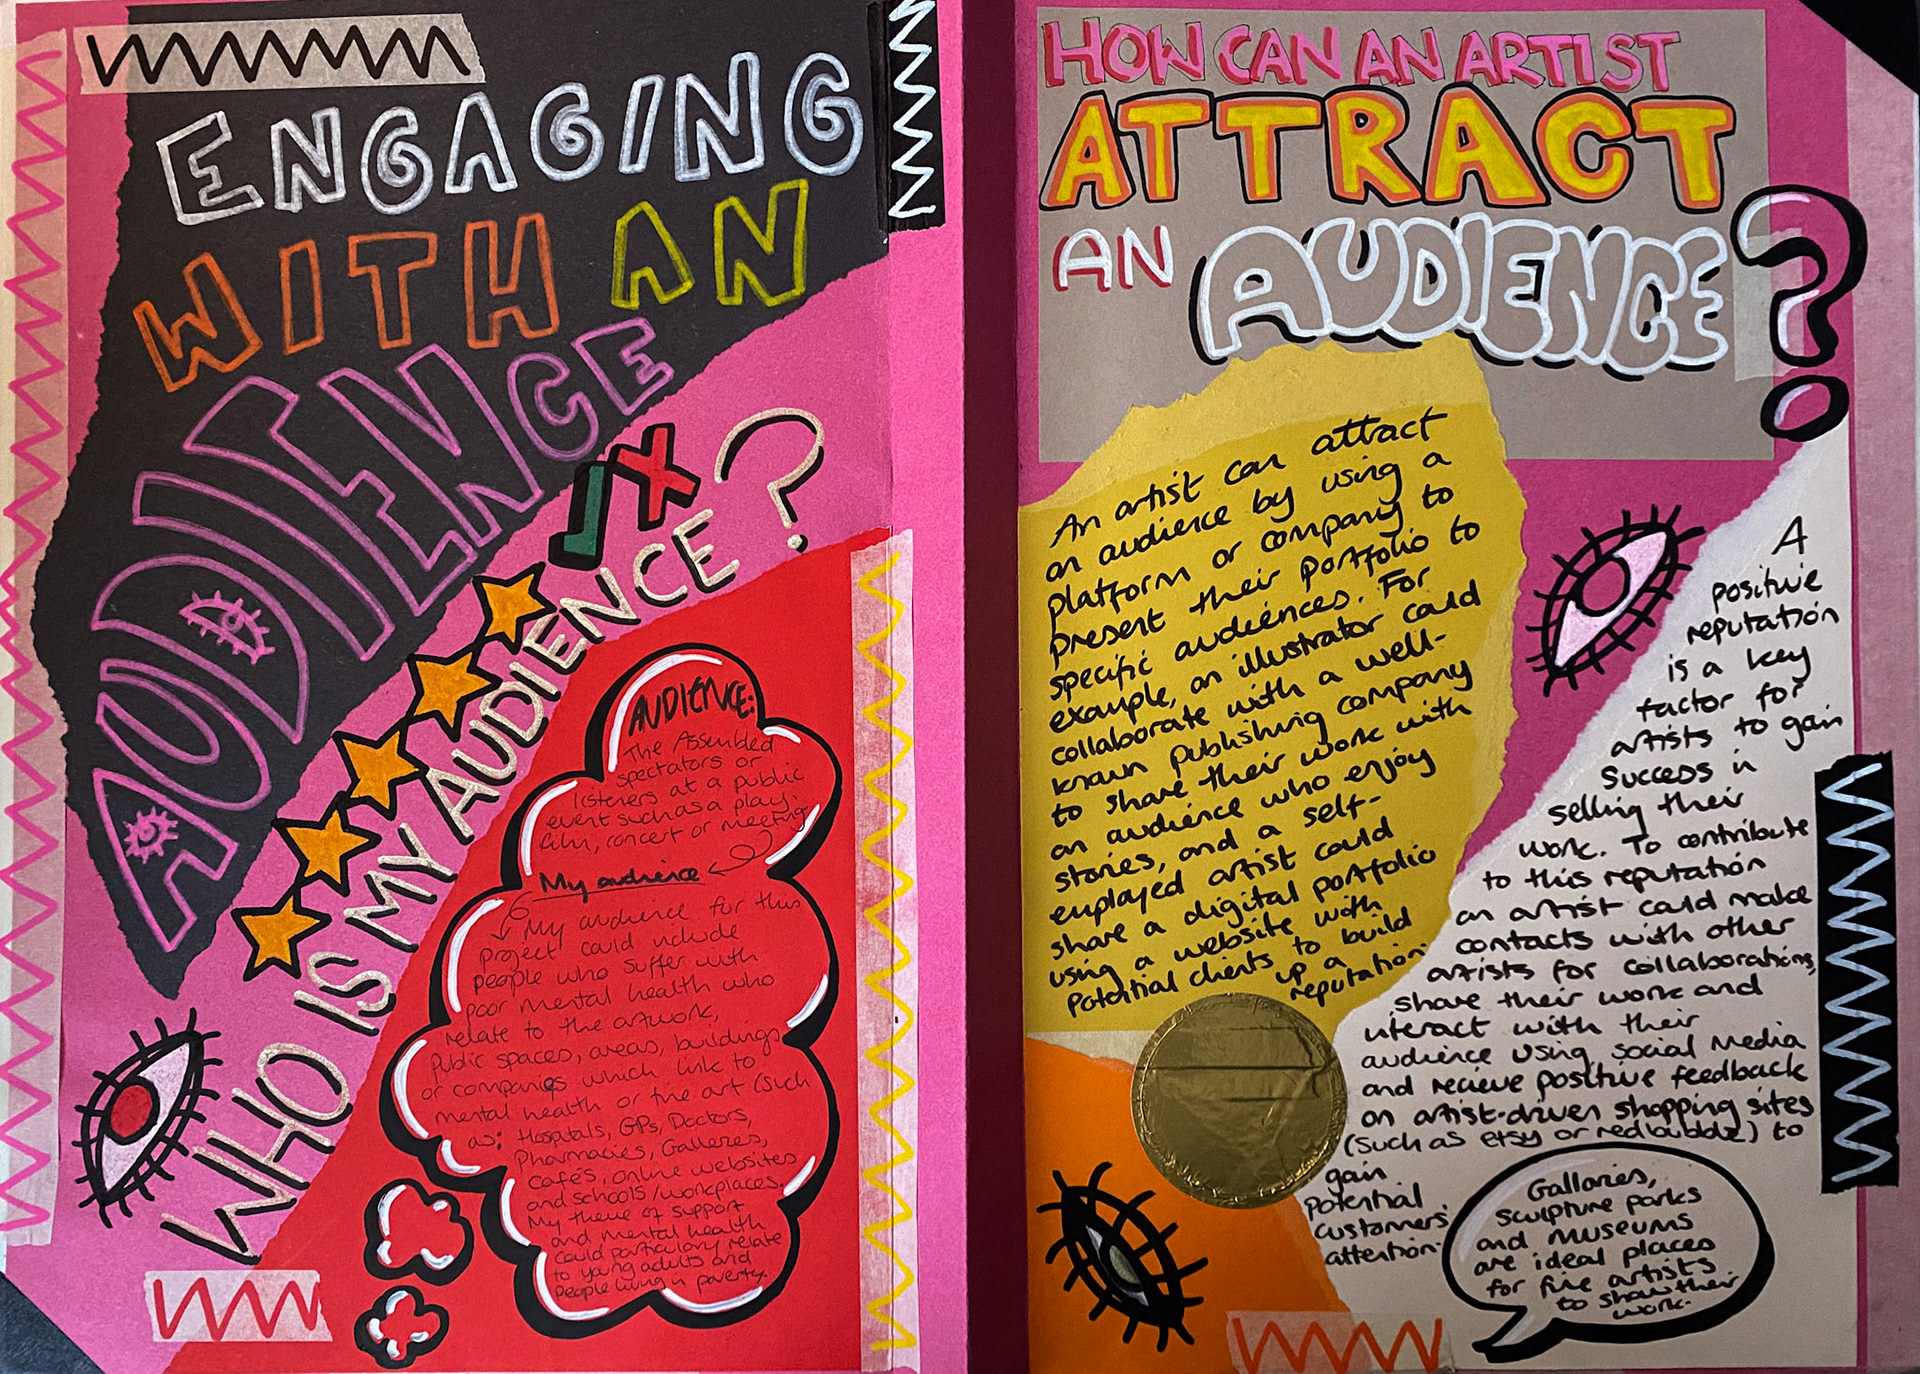 ENGAGING
WITH AN
AUDIENCE
WHO IS MY AUDIENCE?
AUDIENCE:
The Assembled
spectators or
listeners at a public
event such as a play,
film, concert or meeting.
My audience
My audience for this
project could include
people who suffer with
poor mental health who
relate to the artwork,
Public spaces, areas, buildings
or companies which link to
mental health or fine art (such
as: Hospitals, GPs, Doctors,
Pharmacies, Galleries,
cafés, online websites
and schools/workplaces.
My theme of support
and mental health
could particulary relate
to young adults and
people living in poverty.
HOW CAN AN ARTIST
ATTRACT
AN AUDIENCE?
An artist can attract
an audience by using a
platform or company to
present their portfolio to
specific audiences. For
example, an illustrator could
collaborate with a well-
known publishing company
to share their work with
an audience who enjoy
stories, and a self-
employed artist could
share a digital portfolio
using a website with
potential clients to build
up a
reputation.
A
positive
reputation
is a key
factor for
artists to gain
success in
selling their
work. To contribute
to this reputation
an artist could make
contacts with other
artists for collaborations,
share their work and
interact with their
audience using social media
and recieve positive feedback
on artist-driven shopping sites
(such as etsy or redbubble) to
gain
potential
customers'
attention.
Galleries,
sculpture parks
and museums
are ideal places
for fine artists
to show their
work.